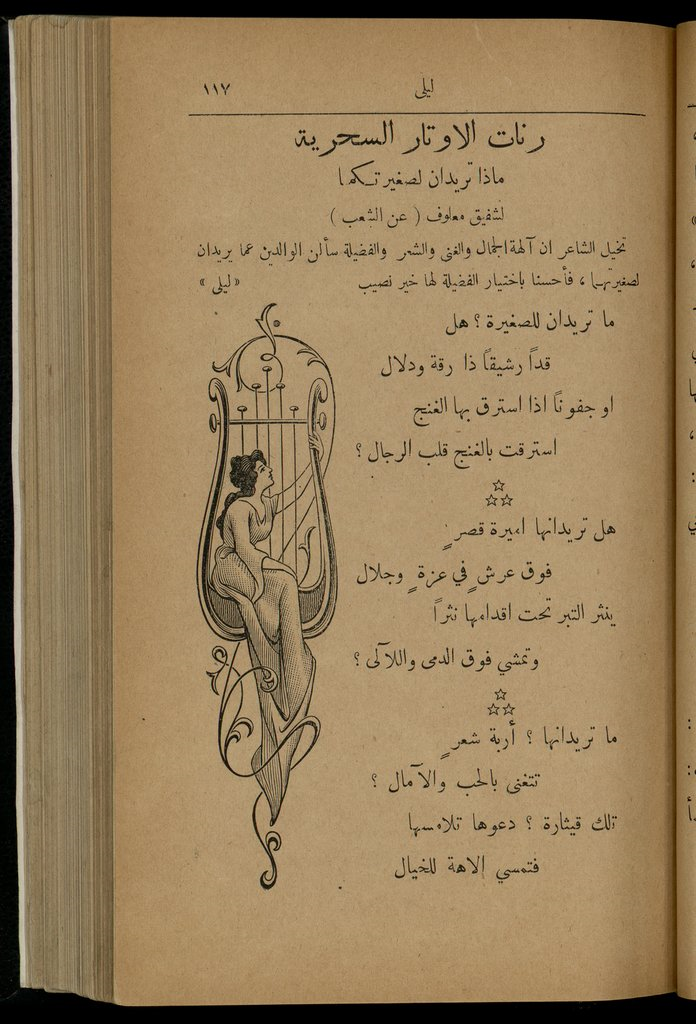 ليلى
١١٧
رنات الاوتار السحرية
ماذا تريدان لصغيرتـكما
لشفيق معلوف ( عن الشعب )
تخيل الشاعر ان آلهة الجمال والغنى والشعر والفضيلة سألن الوالدين عما يريدان
لصغيرتهما ، فأحسنا باختيار الفضيلة لها خير نصيب « ليلى »
ما تريدان للصغيرة ؟ هل
قداً رشيقاً ذا رقة ودلال
او جفوناً اذا استرق بها الغنج
استرقت بالغنج قلب الرجال ؟
هل تريدانها اميرة قصرٍ
فوق عرشٍ في عزةٍ وجلال
ينثر التبر تحت اقدامها نثراً
وتمشي فوق الدمى واللآلى ؟
ما تريدانها ؟ أربة شعرٍ
تتغنى بالحب والآمال ؟
تلك قيثارة ؟ دعوها تلامسها
فتمسي إلاهة للخيال